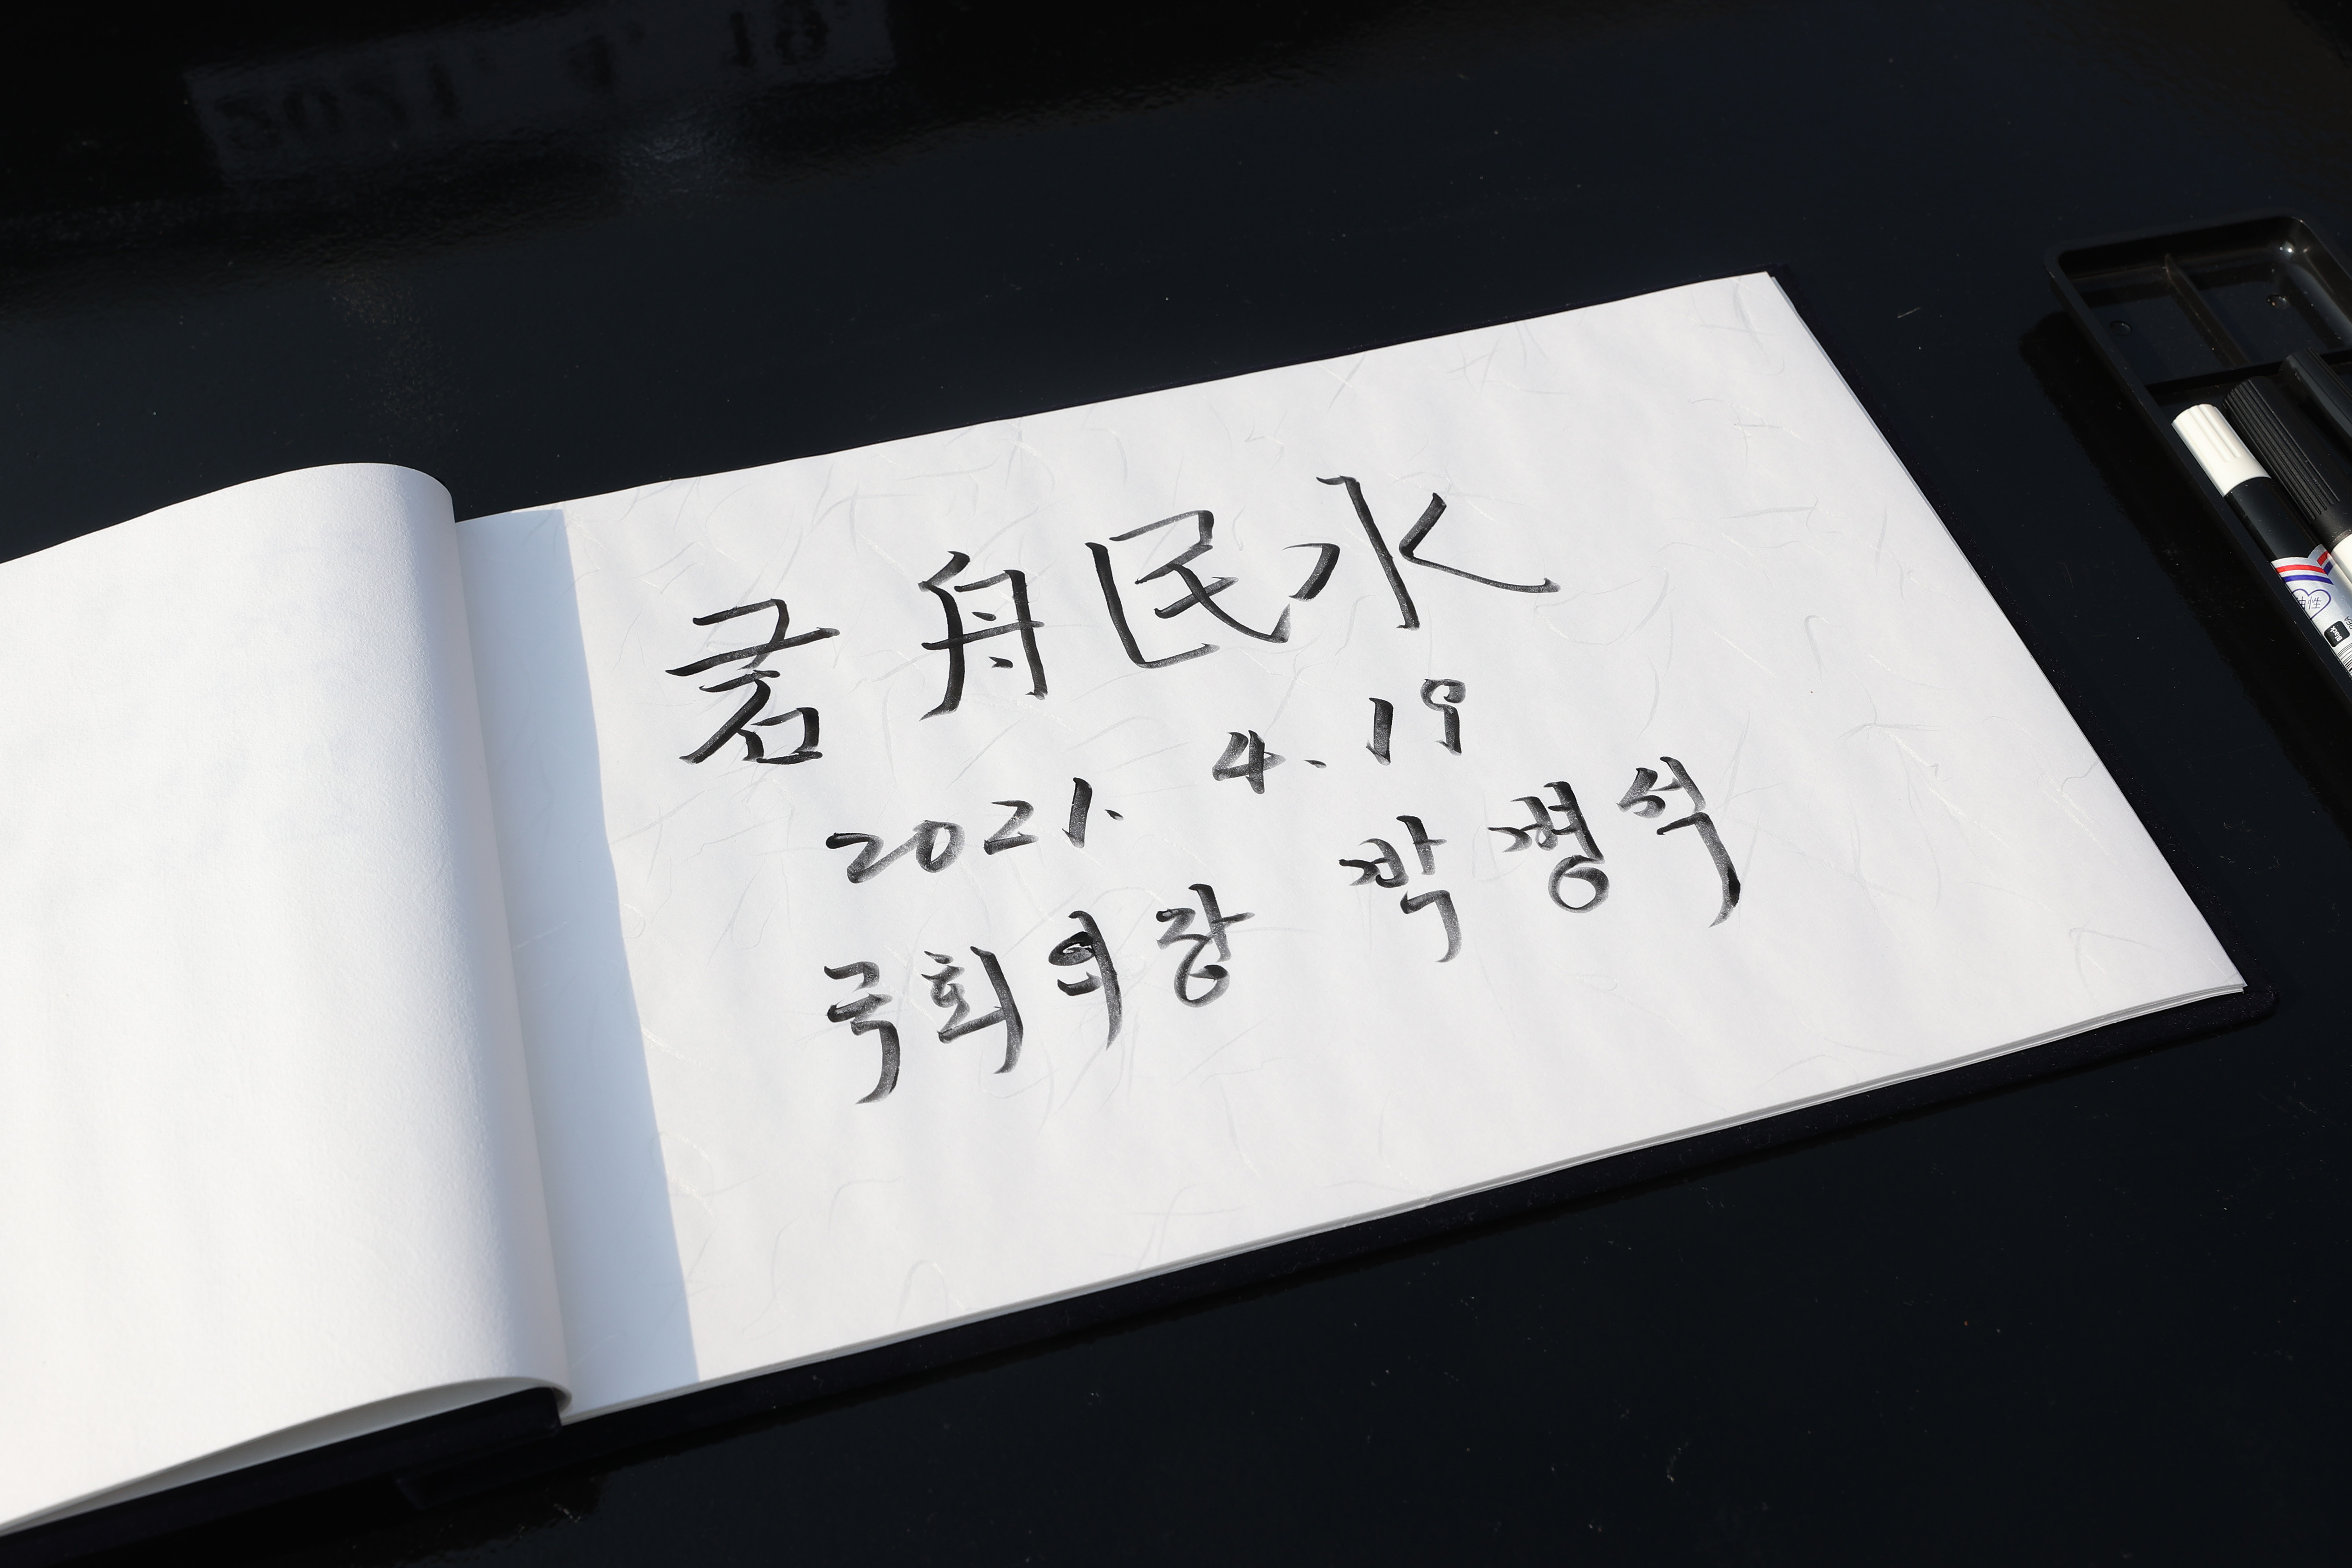 君舟民水
2021. 4. 19
국회의장 박병석
油性